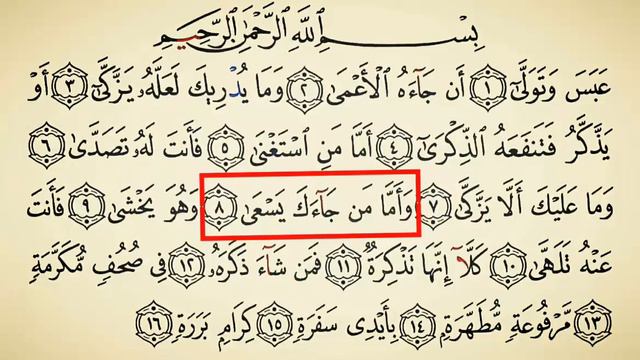 بِسْمِ اللَّهِ الرَّحْمَٰنِ الرَّحِيمِ
عَبَسَ وَتَوَلَّىٰٓ ١ أَن جَآءَهُ الْأَعْمَىٰ ٢ وَمَا يُدْرِيكَ لَعَلَّهُۥ يَزَّكَّىٰٓ ٣ أَوْ
يَذَّكَّرُ فَتَنفَعَهُ الذِّكْرَىٰٓ ٤ أَمَّا مَنِ اسْتَغْنَىٰ ٥ فَأَنتَ لَهُۥ تَصَدَّىٰ ٦
وَمَا عَلَيْكَ أَلَّا يَزَّكَّىٰ ٧ وَأَمَّا مَن جَآءَكَ يَسْعَىٰ ٨ وَهُوَ يَخْشَىٰ ٩ فَأَنتَ
عَنْهُ تَلَهَّىٰ ١٠ كَلَّآ إِنَّهَا تَذْكِرَةٌ ١١ فَمَن شَآءَ ذَكَرَهُۥ ١٢ فِي صُحُفٍ مُّكَرَّمَةٍ
١٣ مَّرْفُوعَةٍ مُّطَهَّرَةٍۭ ١٤ بِأَيْدِي سَفَرَةٍ ١٥ كِرَامٍۭ بَرَرَةٍ ١٦